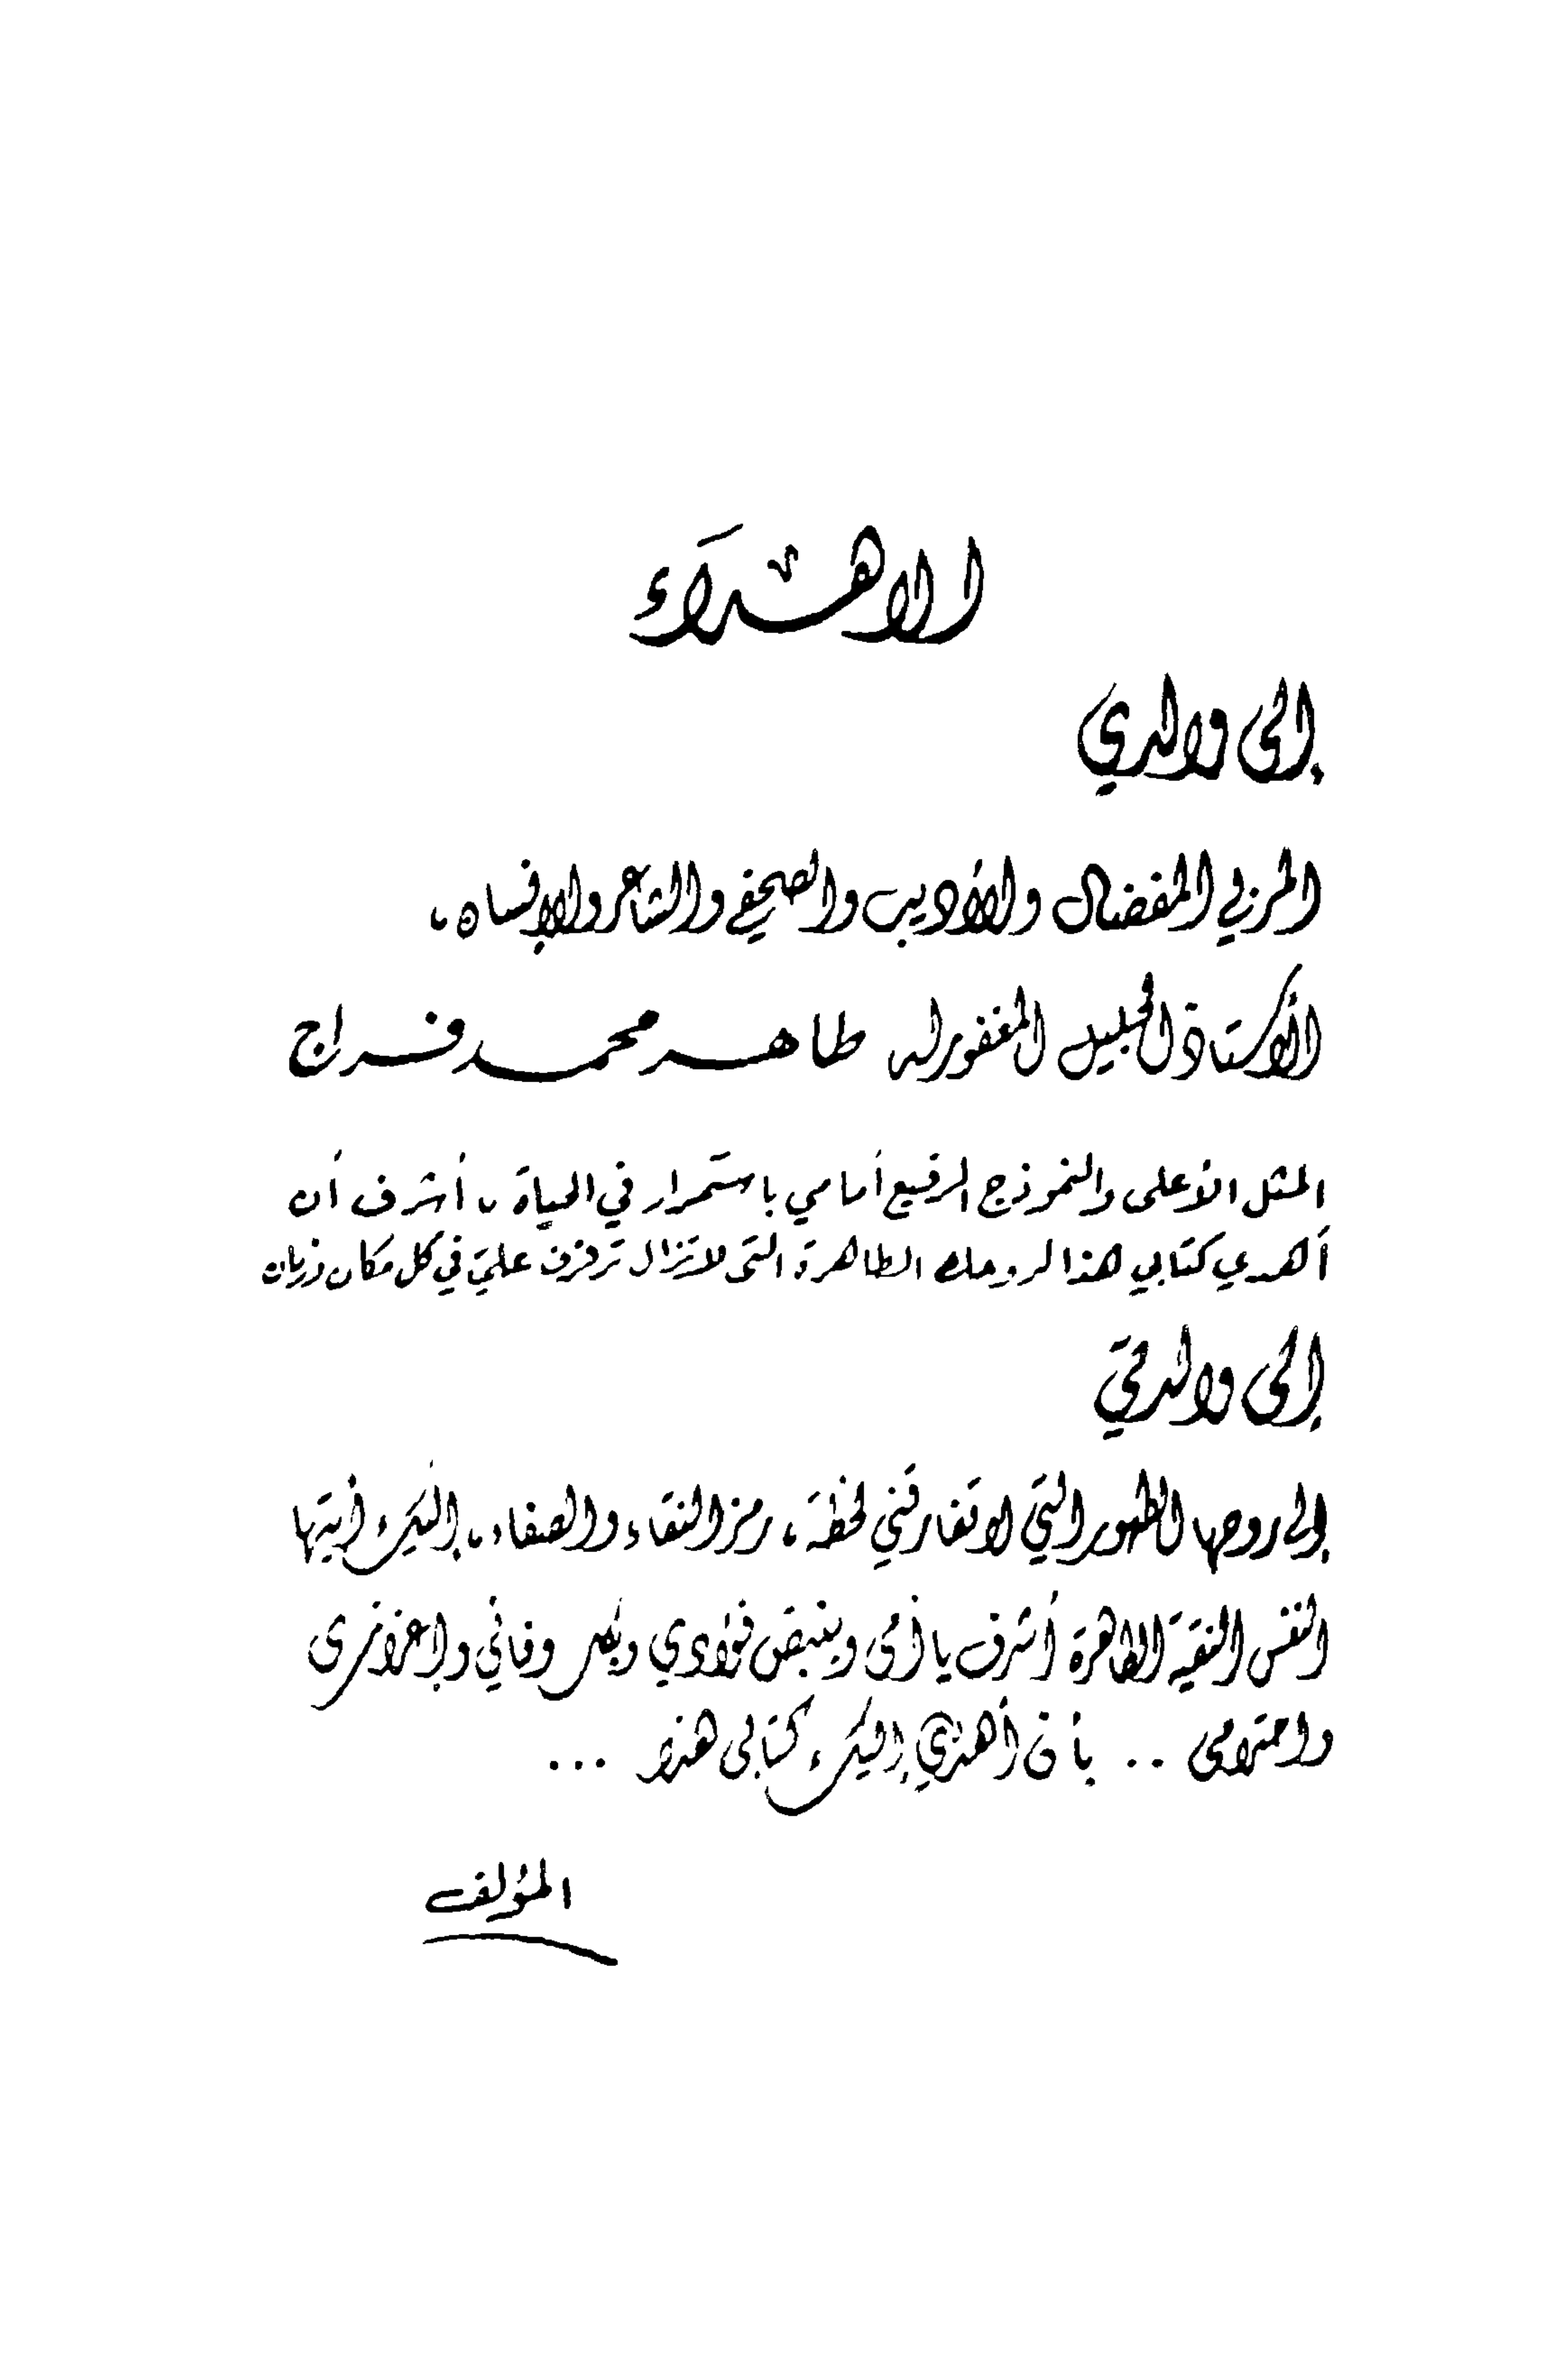 الاهداء
إلى والدي
المربي المفضال والأديب والصحفي والشاعر والإنسان ،
الأستاذ الجليل المغفور له طاهر محمد فراج
المثل الأعلى والنموذج الرفيع أمامي باستمرار في الحياة ، أشرف أن
أهدي كتابي هذا لروحك الطاهرة التي لا تزال ترفرف عليّ في كل مكان وزمان
إلى والدتي
إلى روحها الطهور التي لا تفارقني لحظة ، رمز النقاء والصفاء ، إليك أيتها
النفس النقية الطاهرة أشرف يا أمي وبنبض فؤادي وبكل وفائي وإعزازي
واحترامي .. بأن أهدي إليك كتابي هذا ...
المؤلف